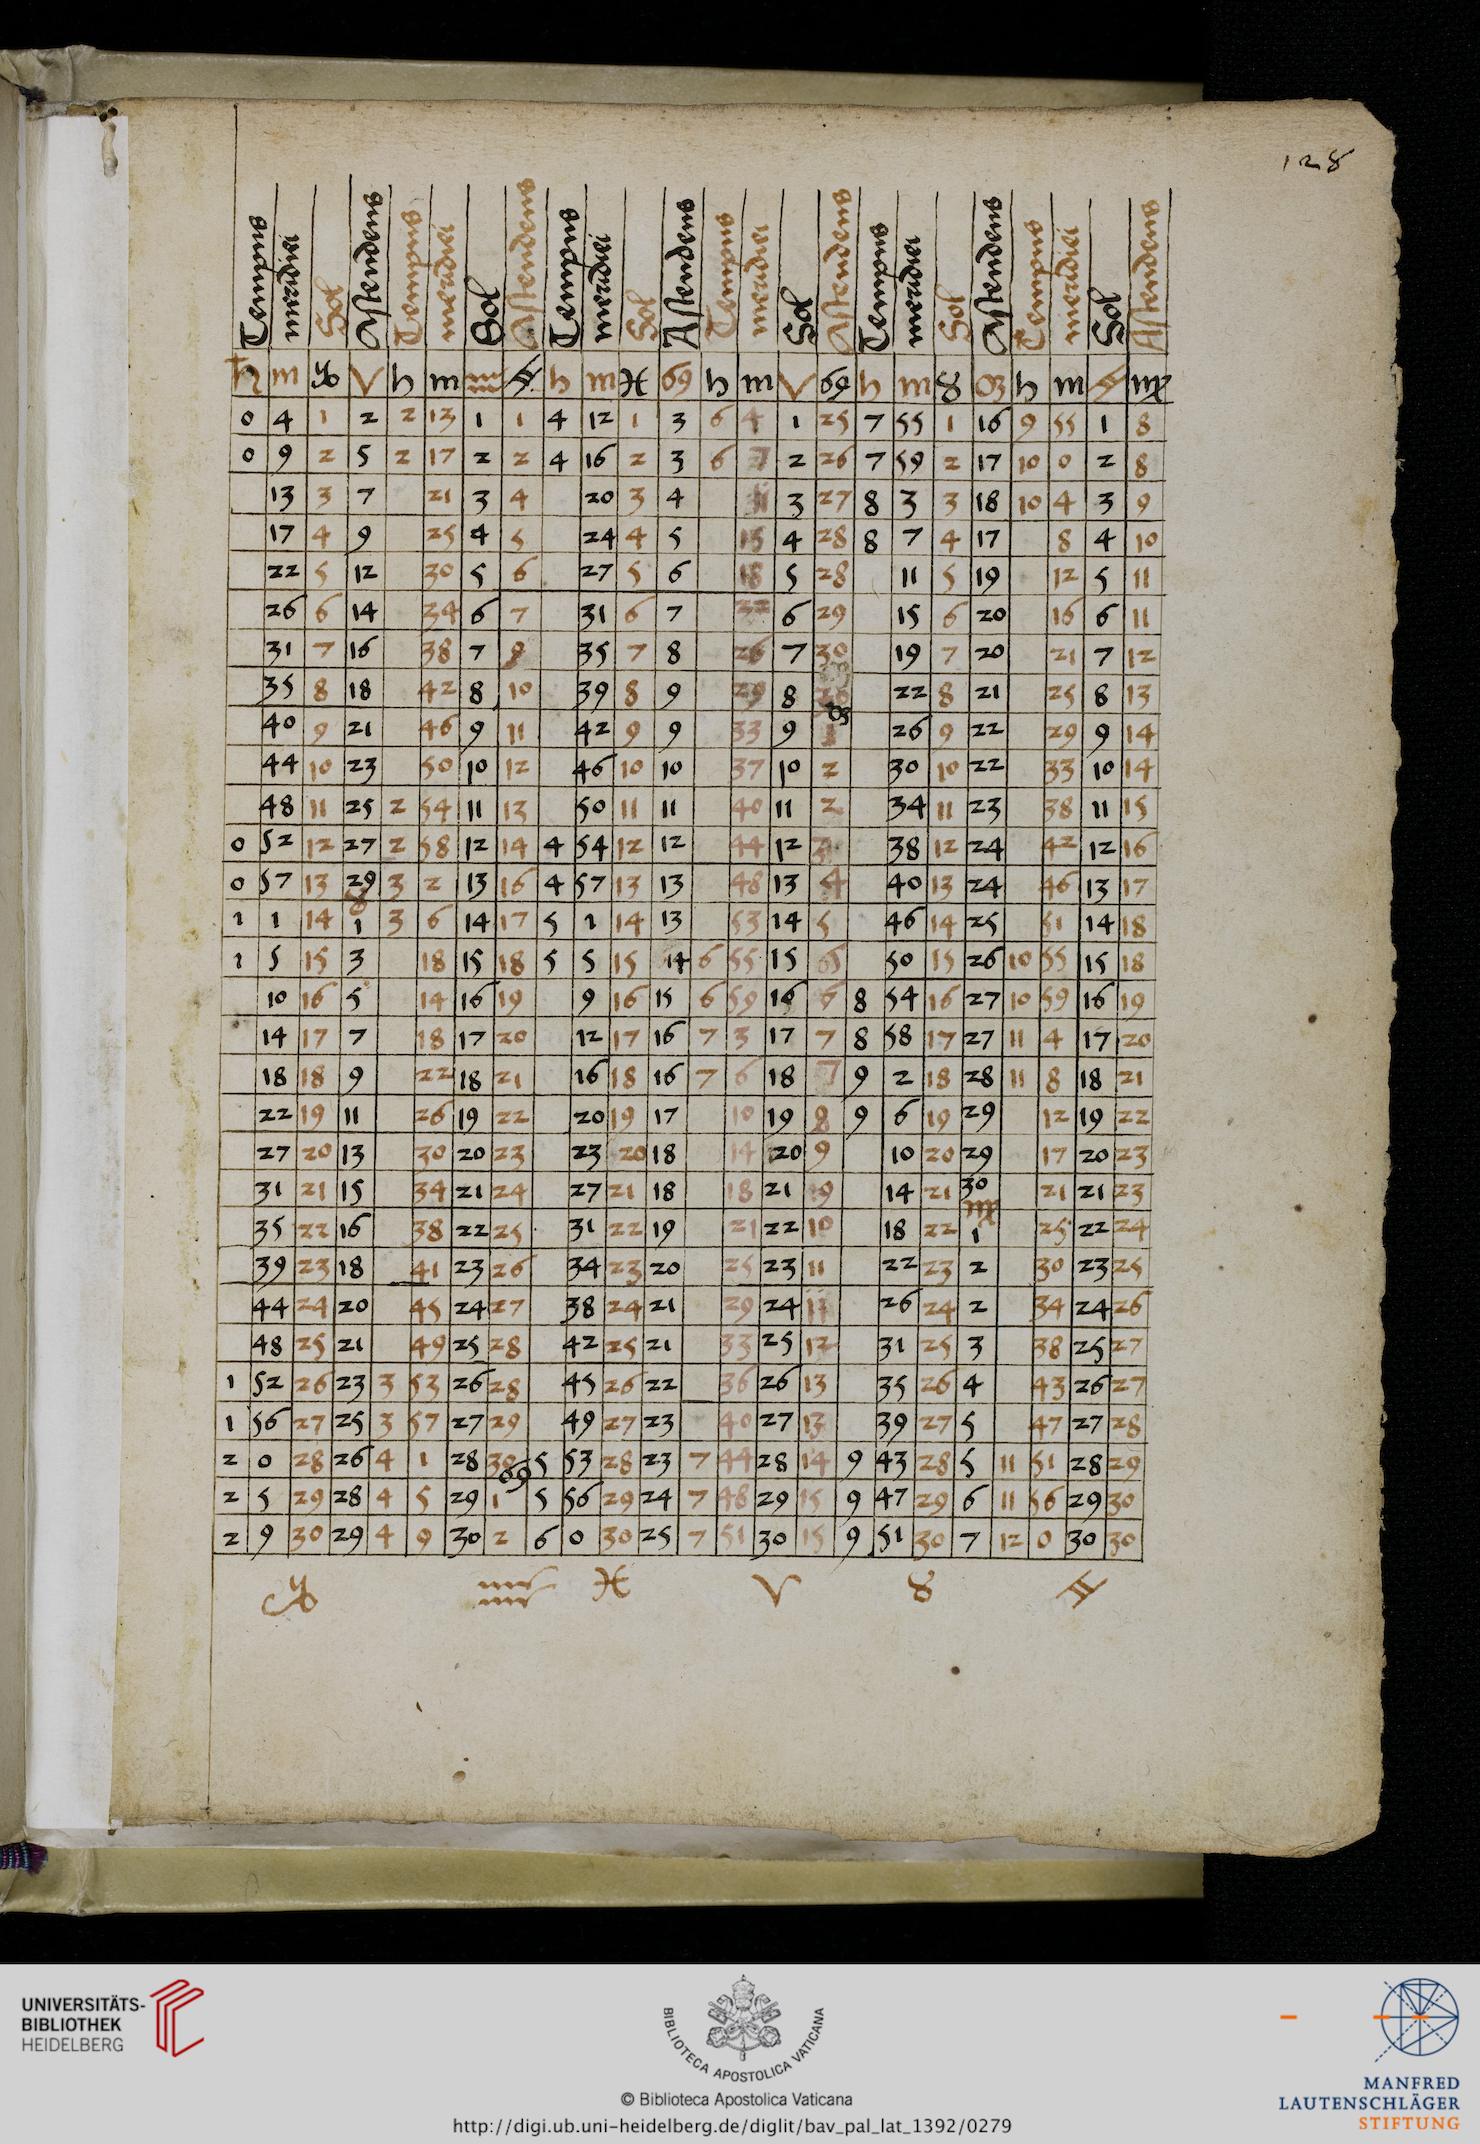 128
Tempus meridiei Sol Ascendens Tempus meridiei Sol Ascendens Tempus meridiei Sol Ascendens Tempus meridiei Sol Ascendens Tempus meridiei Sol Ascendens Tempus meridiei Sol Ascendens
h m ♑ ♈ h m ♒ ♊ h m ♓ ♋ h m ♈ ♋ h m ♉ ♌ h m ♊ ♍
0 4 1 2 2 13 1 1 4 12 1 3 6 4 1 25 7 55 1 16 9 55 1 8
0 9 2 5 2 17 2 2 4 16 2 3 6 7 2 26 7 59 2 17 10 0 2 8
13 3 7 21 3 4 20 3 4 11 3 27 8 3 3 18 10 4 3 9
17 4 9 25 4 5 24 4 5 15 4 28 8 7 4 17 8 4 10
22 5 12 30 5 6 27 5 6 18 5 28 11 5 19 12 5 11
26 6 14 34 6 7 31 6 7 22 6 29 15 6 20 16 6 11
31 7 16 38 7 8 35 7 8 26 7 30 19 7 20 21 7 12
35 8 18 42 8 10 39 8 9 29 8 22 8 21 25 8 13
40 9 21 46 9 11 42 9 9 33 9 ♌ 1 26 9 22 29 9 14
44 10 23 50 10 12 46 10 10 37 10 2 30 10 22 33 10 14
48 11 25 2 54 11 13 50 11 11 40 11 2 34 11 23 38 11 15
0 52 12 27 2 58 12 14 4 54 12 12 44 12 3 38 12 24 42 12 16
0 57 13 29 3 2 13 16 4 57 13 13 48 13 4 40 13 24 46 13 17
1 1 14 ♉ 1 3 6 14 17 5 1 14 13 53 14 5 46 14 25 51 14 18
1 5 15 3 18 15 18 5 5 15 14 6 55 15 50 15 26 10 55 15 18
10 16 5 14 16 19 9 16 15 6 59 16 6 8 54 16 27 10 59 16 19
14 17 7 18 17 20 12 17 16 7 3 17 7 8 58 17 27 11 4 17 20
18 18 9 22 18 21 16 18 16 7 6 18 7 9 2 18 28 11 8 18 21
22 19 11 26 19 22 20 19 17 10 19 8 9 6 19 29 12 19 22
27 20 13 30 20 23 23 20 18 14 20 9 10 20 29 17 20 23
31 21 15 34 21 24 27 21 18 18 21 19 14 21 30 21 21 23
35 22 16 38 22 25 31 22 19 21 22 10 18 22 ♍ 1 25 22 24
39 23 18 41 23 26 34 23 20 25 23 11 22 23 2 30 23 25
44 24 20 45 24 27 38 24 21 29 24 11 26 24 2 34 24 26
48 25 21 49 25 28 42 25 21 33 25 12 31 25 3 38 25 27
1 52 26 23 3 53 26 28 45 26 22 36 26 13 35 26 4 43 26 27
1 56 27 25 3 57 27 29 49 27 23 40 27 13 39 27 5 47 27 28
2 0 28 26 4 1 28 30 5 53 28 23 7 44 28 14 9 43 28 5 11 51 28 29
2 5 29 28 4 5 29 ♋ 1 5 56 29 24 7 48 29 15 9 47 29 6 11 56 29 30
2 9 30 29 4 9 30 2 6 0 30 25 7 51 30 15 9 51 30 7 12 0 30 30
♑ ♒ ♓ ♈ ♉ ♊
UNIVERSITÄTS-
BIBLIOTHEK
HEIDELBERG
BIBLIOTECA APOSTOLICA VATICANA
© Biblioteca Apostolica Vaticana
http://digi.ub.uni-heidelberg.de/diglit/bav_pal_lat_1392/0279
MANFRED
LAUTENSCHLÄGER
STIFTUNG